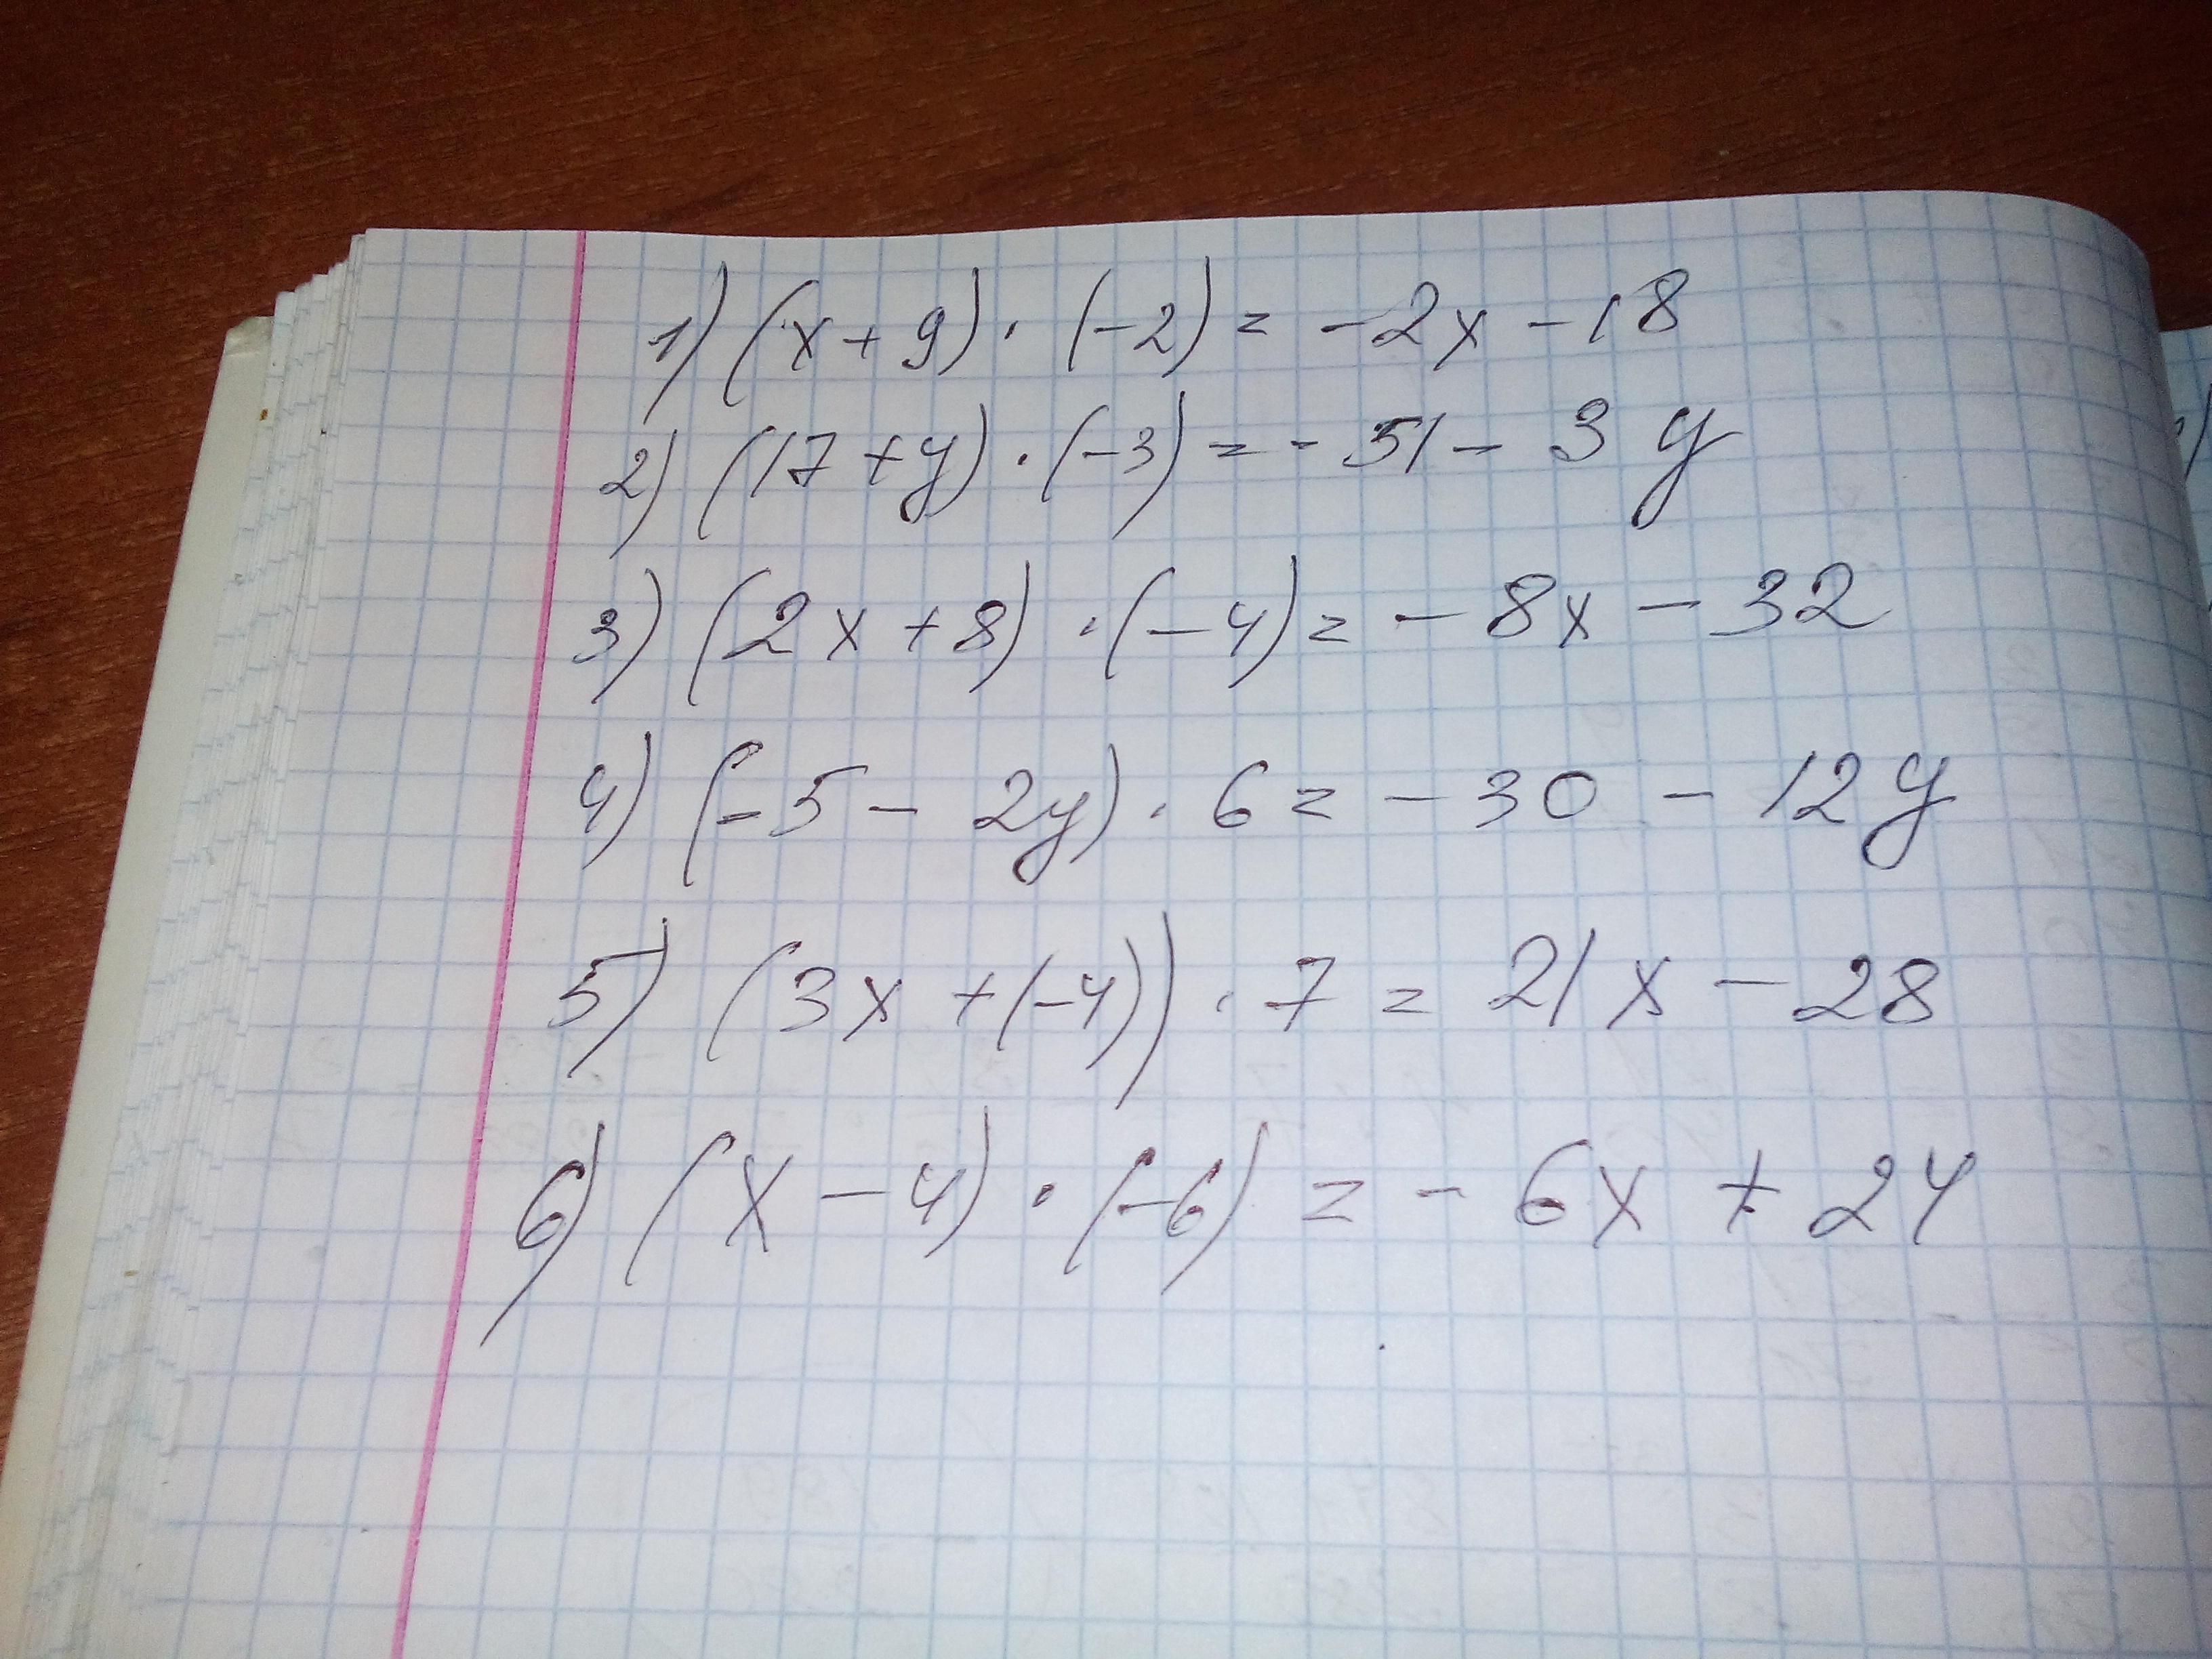 1) (x + 9) · (-2) = -2x - 18
2) (17 + y) · (-3) = - 51 - 3y
3) (2x + 8) · (-4) = - 8x - 32
4) (-5 - 2y) · 6 = - 30 - 12y
5) (3x + (-4)) · 7 = 21x - 28
6) (x - 4) · (-6) = - 6x + 24